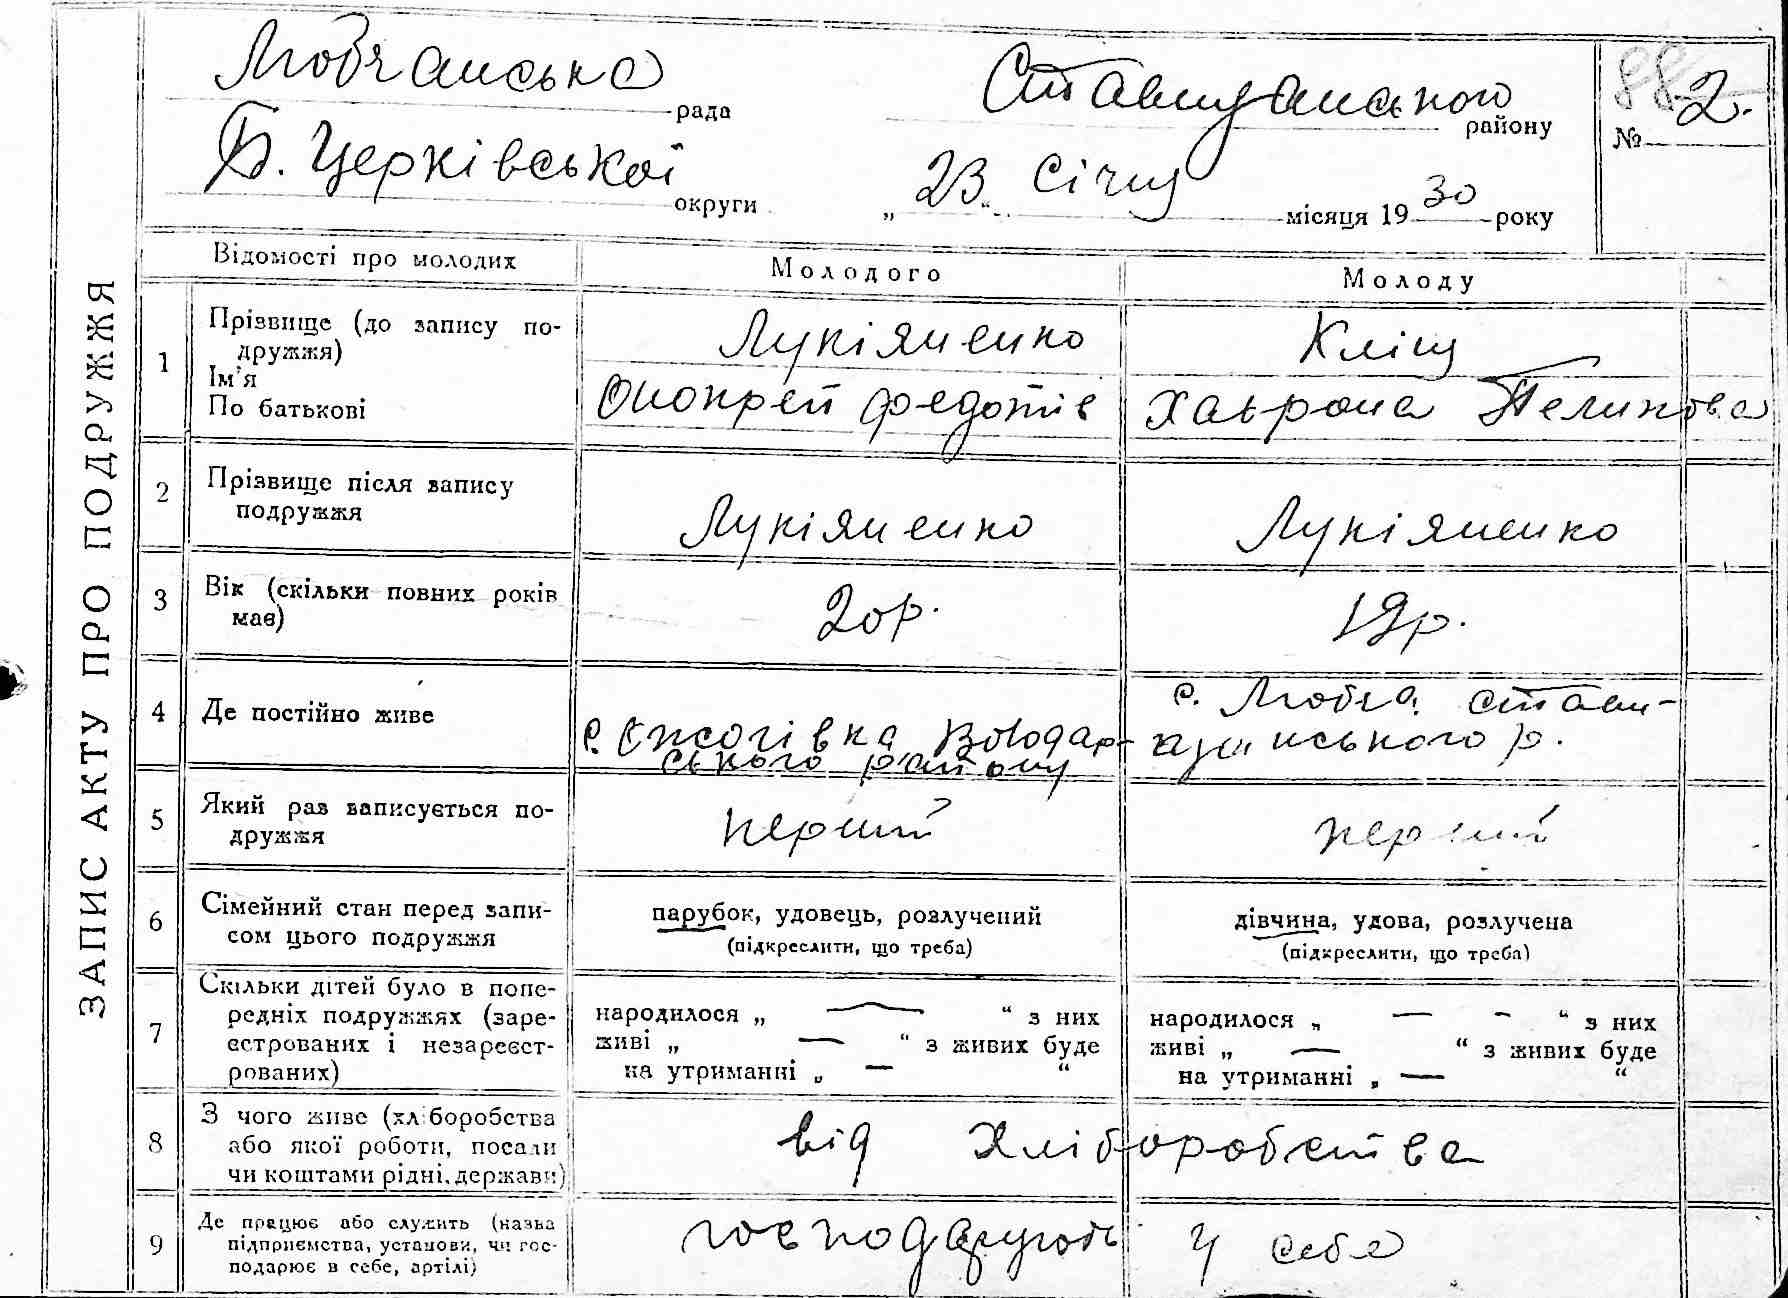 Любчанська рада
Ставищанського району
88 2.
№
Б. Церківської округи
„ 23 “ Січня місяця 1930 року
ЗАПИС АКТУ ПРО ПОДРУЖЖЯ
Відомості про молодих
Молодого
Молоду
1
Прізвище (до запису по-
дружжя)
Ім'я
По батькові
Лукіяненко
Оноптрей Федотів
Кліщ
Хаврона Пелипова
2
Прізвище після запису
подружжя
Лукіяненко
Лукіяненко
3
Вік (скільки повних років
має)
20р.
19р.
4
Де постійно живе
с. Володар-
ського району
с. Любча Стави-
щанського р.
5
Який раз записується по-
дружжя
перший
перший
6
Сімейний стан перед запи-
сом цього подружжя
парубок, удовець, розлучений
(підкреслити, що треба)
дівчина, удова, розлучена
(підкреслити, що треба)
7
Скільки дітей було в попе-
редніх подружжях (заре-
єстрованих і незареєст-
рованих)
народилося „ — “ з них
живі „ — “ з живих буде
на утриманні „ — “
народилося „ — - “ з них
живі „ — “ з живих буде
на утриманні „ — “
8
З чого живе (хліборобства
або якої роботи, посади
чи коштами рідні, держави)
від хліборобства
9
Де працює або служить (назва
підприємства, установи, чи гос-
подарює в себе, артілі)
господарують у себе